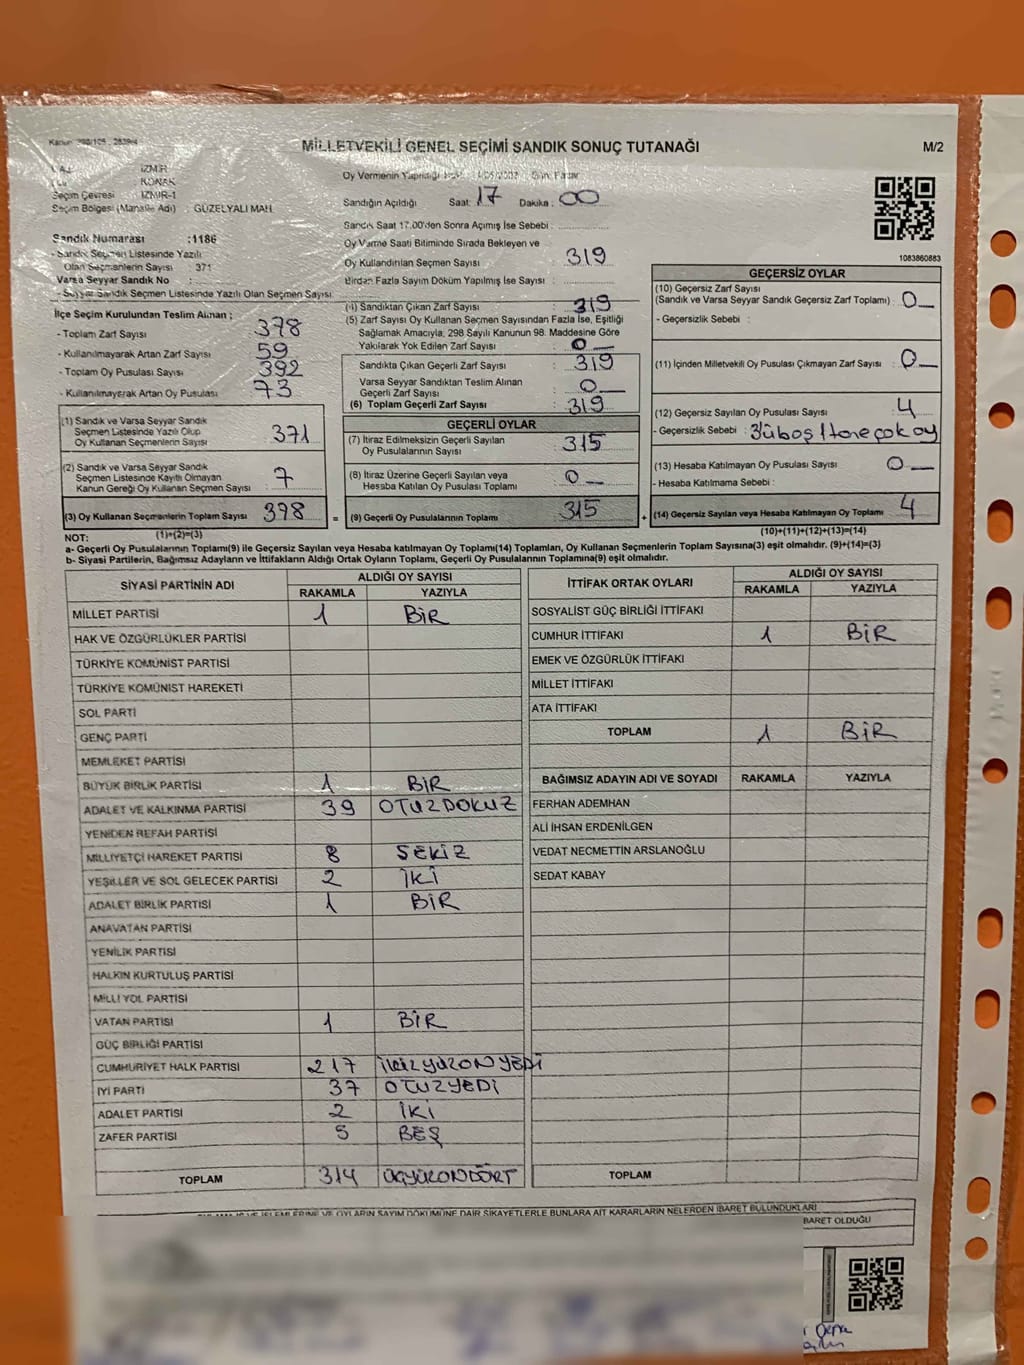 MİLLETVEKİLİ GENEL SEÇİMİ SANDIK SONUÇ TUTANAĞI
M/2
İZMİR
KONAK
Seçim Çevresi : İZMİR-1
Seçim Bölgesi (Mahalle Adı) : GÜZELYALI MAH.
Sandık Numarası :1186
- Sandık Seçmen Listesinde Yazılı
Olan Seçmenlerin Sayısı : 371
Varsa Seyyar Sandık No :
- Seyyar Sandık Seçmen Listesinde Yazılı Olan Seçmen Sayısı:
İlçe Seçim Kurulundan Teslim Alınan ;
- Toplam Zarf Sayısı : 378
- Kullanılmayarak Artan Zarf Sayısı : 59
- Toplam Oy Pusulası Sayısı : 392
- Kullanılmayarak Artan Oy Pusulası : 73
(1) Sandık ve Varsa Seyyar Sandık
Seçmen Listesinde Yazılı Olup
Oy Kullanan Seçmenlerin Sayısı : 371
(2) Sandık ve Varsa Seyyar Sandık
Seçmen Listesinde Kayıtlı Olmayan
Kanun Gereği Oy Kullanan Seçmen Sayısı : 7
(3) Oy Kullanan Seçmenlerin Toplam Sayısı 398
(1)+(2)=(3)
Oy Vermenin Yapıldığı
Sandığın Açıldığı Saat: 17 Dakika : 00
Sandık Saat 17.00'den Sonra Açılmış İse Sebebi :
Oy Verme Saati Bitiminde Sırada Bekleyen ve
Oy Kullandırılan Seçmen Sayısı : 319
Birden Fazla Sayım Döküm Yapılmış İse Sayısı :
(4) Sandıktan Çıkan Zarf Sayısı : 319
(5) Zarf Sayısı Oy Kullanan Seçmen Sayısından Fazla İse, Eşitliği
Sağlamak Amacıyla, 298 Sayılı Kanunun 98. Maddesine Göre
Yakılarak Yok Edilen Zarf Sayısı : 0
Sandıkta Çıkan Geçerli Zarf Sayısı : 319
Varsa Seyyar Sandıktan Teslim Alınan
Geçerli Zarf Sayısı : 0
(6) Toplam Geçerli Zarf Sayısı : 319
GEÇERLİ OYLAR
(7) İtiraz Edilmeksizin Geçerli Sayılan
Oy Pusulalarının Sayısı : 315
(8) İtiraz Üzerine Geçerli Sayılan veya
Hesaba Katılan Oy Pusulası Toplamı : 0
= (9) Geçerli Oy Pusulalarının Toplamı : 315
1083860883
GEÇERSİZ OYLAR
(10) Geçersiz Zarf Sayısı
(Sandık ve Varsa Seyyar Sandık Geçersiz Zarf Toplamı) : 0
- Geçersizlik Sebebi :
(11) İçinden Milletvekili Oy Pusulası Çıkmayan Zarf Sayısı : 0
(12) Geçersiz Sayılan Oy Pusulası Sayısı : 4
- Geçersizlik Sebebi : 3'ü boş 1 tane çok oy
(13) Hesaba Katılmayan Oy Pusulası Sayısı : 0
- Hesaba Katılmama Sebebi :
+ (14) Geçersiz Sayılan veya Hesaba Katılmayan Oy Toplamı 4
(10)+(11)+(12)+(13)=(14)
NOT:
a- Geçerli Oy Pusulalarının Toplamı(9) ile Geçersiz Sayılan veya Hesaba katılmayan Oy Toplamı(14) Toplamları, Oy Kullanan Seçmenlerin Toplam Sayısına(3) eşit olmalıdır. (9)+(14)=(3)
b- Siyasi Partilerin, Bağımsız Adayların ve İttifakların Aldığı Ortak Oyların Toplamı, Geçerli Oy Pusulalarının Toplamına(9) eşit olmalıdır.
SİYASİ PARTİNİN ADI ALDIĞI OY SAYISI
RAKAMLA YAZIYLA
MİLLET PARTİSİ 1 BİR
HAK VE ÖZGÜRLÜKLER PARTİSİ
TÜRKİYE KOMÜNİST PARTİSİ
TÜRKİYE KOMÜNİST HAREKETİ
SOL PARTİ
GENÇ PARTİ
MEMLEKET PARTİSİ
BÜYÜK BİRLİK PARTİSİ 1 BİR
ADALET VE KALKINMA PARTİSİ 39 OTUZDOKUZ
YENİDEN REFAH PARTİSİ
MİLLİYETÇİ HAREKET PARTİSİ 8 SEKİZ
YEŞİLLER VE SOL GELECEK PARTİSİ 2 İKİ
ADALET BİRLİK PARTİSİ 1 BİR
ANAVATAN PARTİSİ
YENİLİK PARTİSİ
HALKIN KURTULUŞ PARTİSİ
MİLLİ YOL PARTİSİ
VATAN PARTİSİ 1 BİR
GÜÇ BİRLİĞİ PARTİSİ
CUMHURİYET HALK PARTİSİ 217 İKİZYÜZONYEDİ
İYİ PARTİ 37 OTUZYEDİ
ADALET PARTİSİ 2 İKİ
ZAFER PARTİSİ 5 BEŞ
TOPLAM 314 ÜÇYÜZONDÖRT
İTTİFAK ORTAK OYLARI ALDIĞI OY SAYISI
RAKAMLA YAZIYLA
SOSYALİST GÜÇ BİRLİĞİ İTTİFAKI
CUMHUR İTTİFAKI 1 BİR
EMEK VE ÖZGÜRLÜK İTTİFAKI
MİLLET İTTİFAKI
ATA İTTİFAKI
TOPLAM 1 BİR
BAĞIMSIZ ADAYIN ADI VE SOYADI RAKAMLA YAZIYLA
FERHAN ADEMHAN
ALİ İHSAN ERDENİLGEN
VEDAT NECMETTİN ARSLANOĞLU
SEDAT KABAY
TOPLAM
VE OYLARIN SAYIM DÖKÜMÜNE DAİR ŞİKAYETLERLE BUNLARA AİT KARARLARIN NELERDEN İBARET BULUNDUKLARI
BARET OLDUĞU